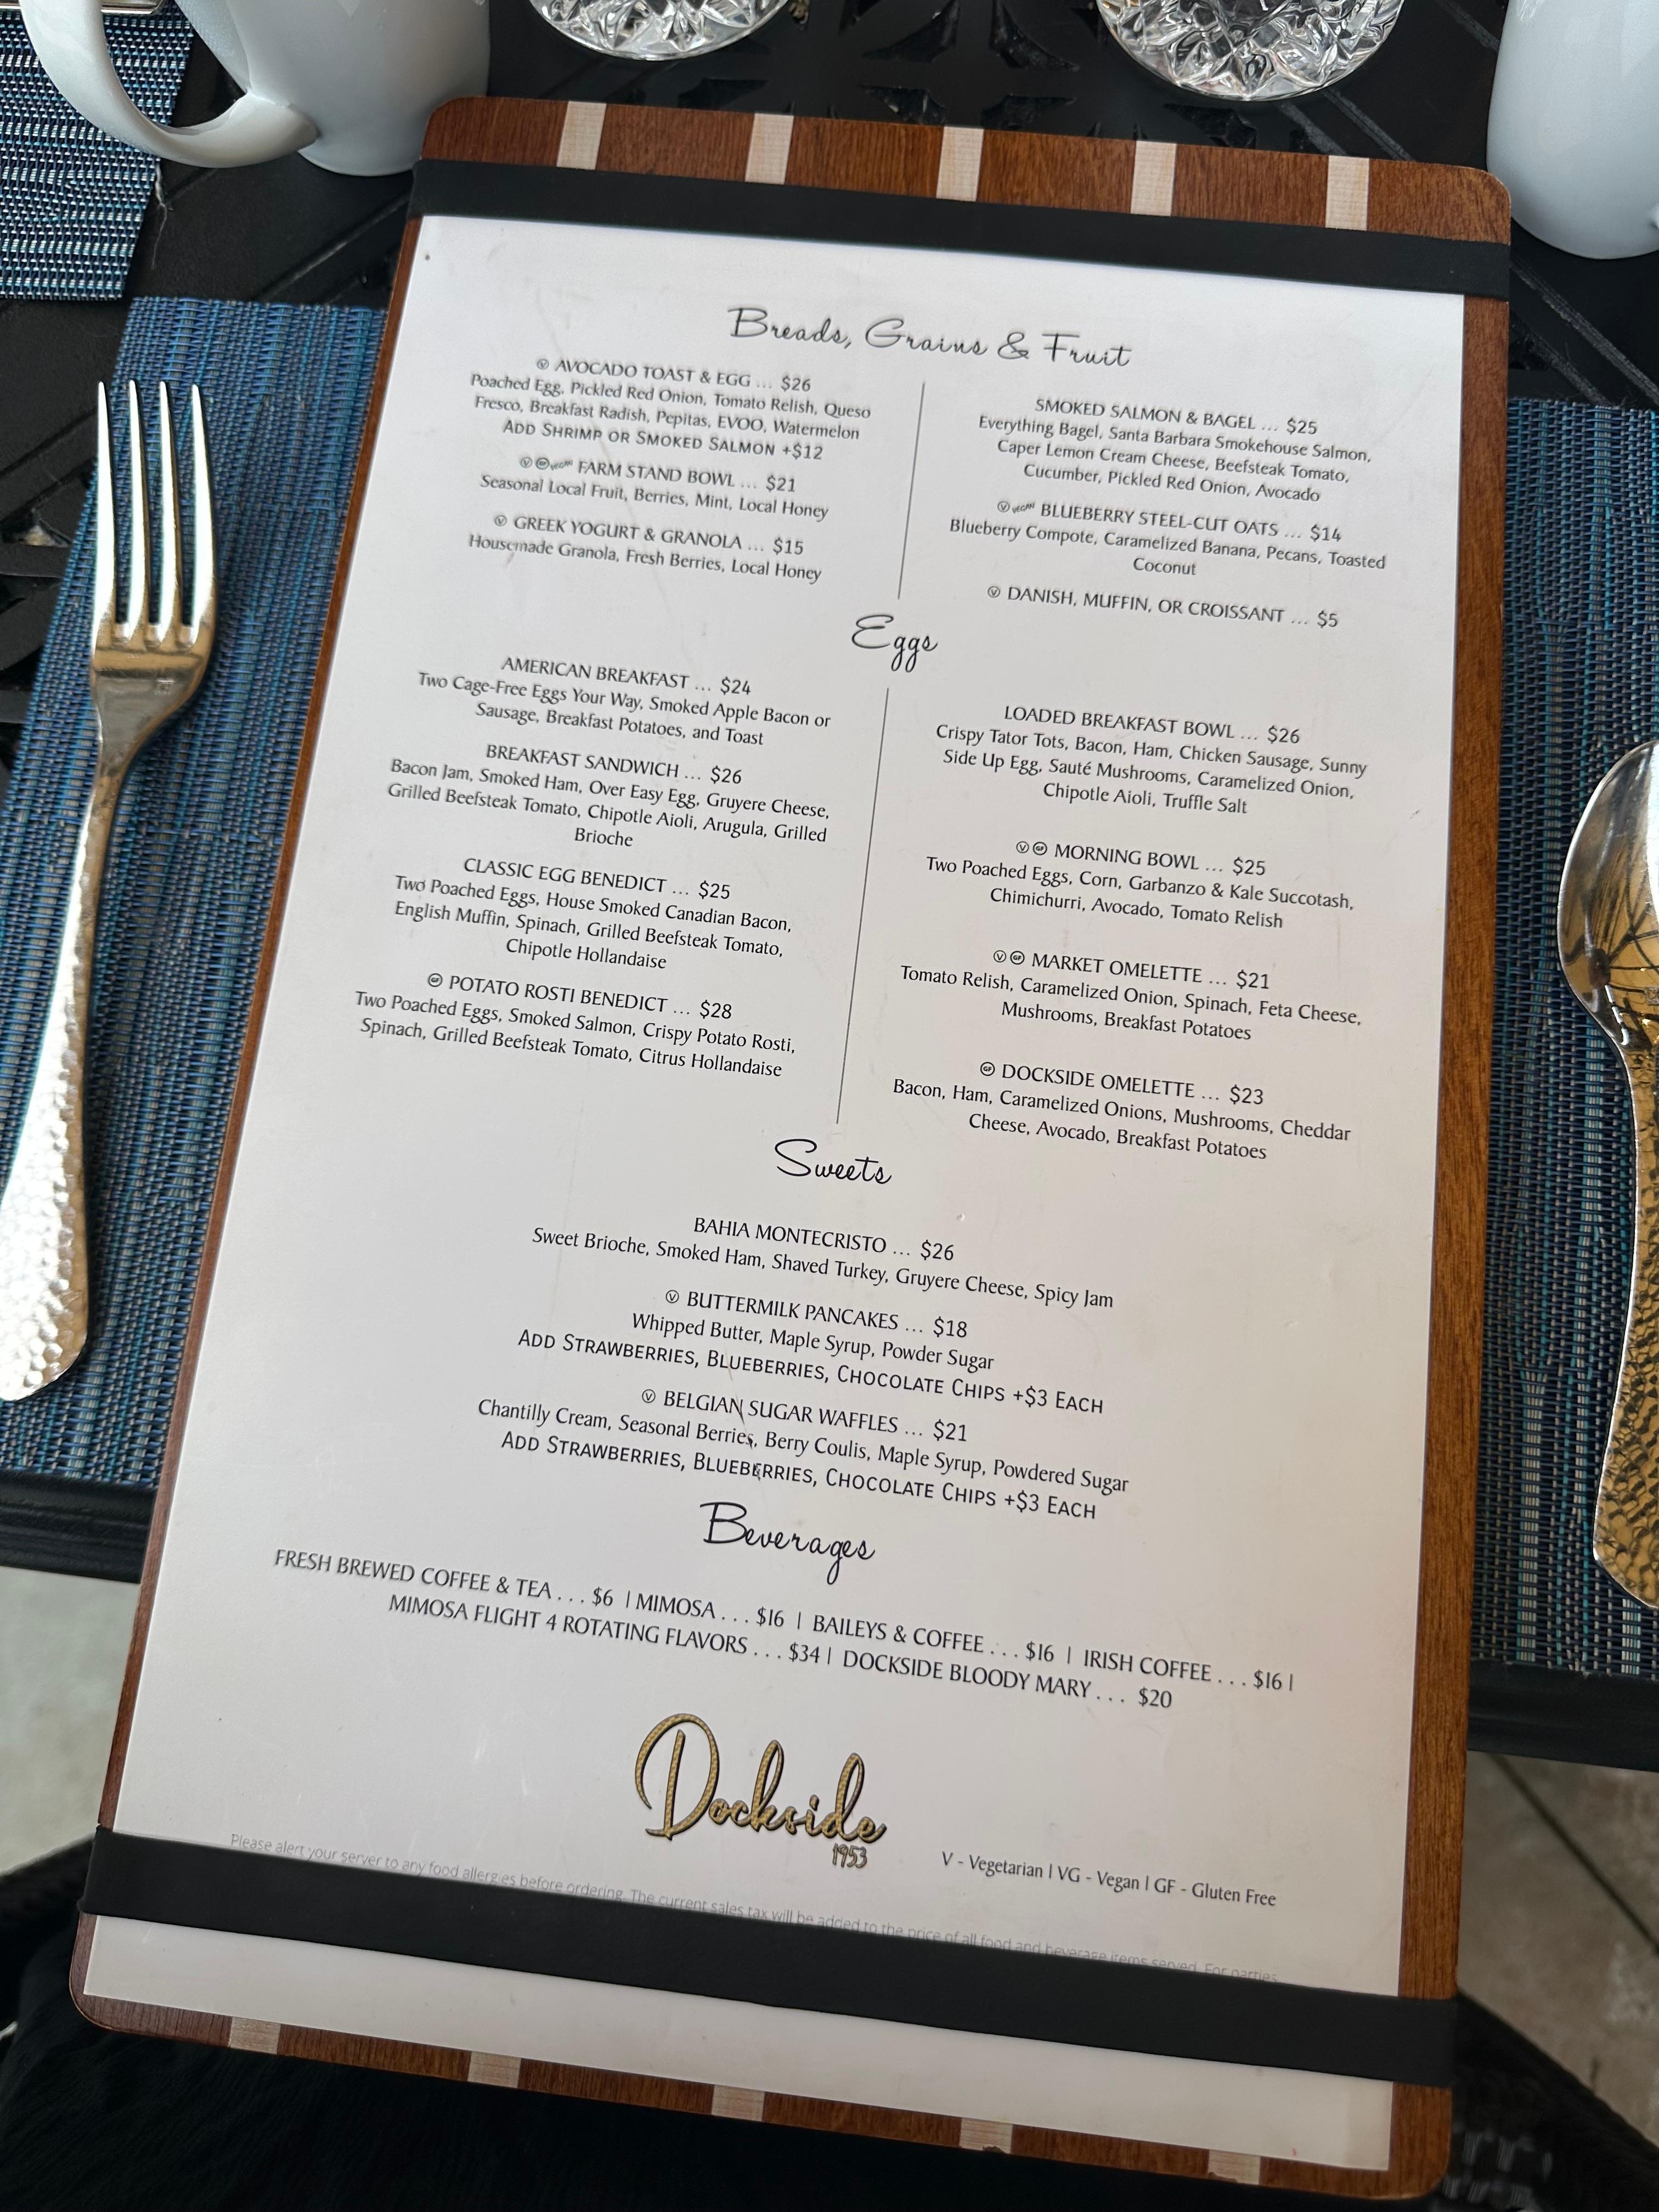 Breads, Grains & Fruit
V AVOCADO TOAST & EGG ... $26
Poached Egg, Pickled Red Onion, Tomato Relish, Queso
Fresco, Breakfast Radish, Pepitas, EVOO, Watermelon
ADD SHRIMP OR SMOKED SALMON +$12
V GF VEGAN FARM STAND BOWL ... $21
Seasonal Local Fruit, Berries, Mint, Local Honey
V GREEK YOGURT & GRANOLA ... $15
Housemade Granola, Fresh Berries, Local Honey
SMOKED SALMON & BAGEL ... $25
Everything Bagel, Santa Barbara Smokehouse Salmon,
Caper Lemon Cream Cheese, Beefsteak Tomato,
Cucumber, Pickled Red Onion, Avocado
V VEGAN BLUEBERRY STEEL-CUT OATS ... $14
Blueberry Compote, Caramelized Banana, Pecans, Toasted
Coconut
V DANISH, MUFFIN, OR CROISSANT ... $5
Eggs
AMERICAN BREAKFAST ... $24
Two Cage-Free Eggs Your Way, Smoked Apple Bacon or
Sausage, Breakfast Potatoes, and Toast
BREAKFAST SANDWICH ... $26
Bacon Jam, Smoked Ham, Over Easy Egg, Gruyere Cheese,
Grilled Beefsteak Tomato, Chipotle Aioli, Arugula, Grilled
Brioche
CLASSIC EGG BENEDICT ... $25
Two Poached Eggs, House Smoked Canadian Bacon,
English Muffin, Spinach, Grilled Beefsteak Tomato,
Chipotle Hollandaise
GF POTATO ROSTI BENEDICT ... $28
Two Poached Eggs, Smoked Salmon, Crispy Potato Rosti,
Spinach, Grilled Beefsteak Tomato, Citrus Hollandaise
LOADED BREAKFAST BOWL ... $26
Crispy Tator Tots, Bacon, Ham, Chicken Sausage, Sunny
Side Up Egg, Sauté Mushrooms, Caramelized Onion,
Chipotle Aioli, Truffle Salt
V GF MORNING BOWL ... $25
Two Poached Eggs, Corn, Garbanzo & Kale Succotash,
Chimichurri, Avocado, Tomato Relish
V GF MARKET OMELETTE ... $21
Tomato Relish, Caramelized Onion, Spinach, Feta Cheese,
Mushrooms, Breakfast Potatoes
GF DOCKSIDE OMELETTE ... $23
Bacon, Ham, Caramelized Onions, Mushrooms, Cheddar
Cheese, Avocado, Breakfast Potatoes
Sweets
BAHIA MONTECRISTO ... $26
Sweet Brioche, Smoked Ham, Shaved Turkey, Gruyere Cheese, Spicy Jam
V BUTTERMILK PANCAKES ... $18
Whipped Butter, Maple Syrup, Powder Sugar
ADD STRAWBERRIES, BLUEBERRIES, CHOCOLATE CHIPS +$3 EACH
V BELGIAN SUGAR WAFFLES ... $21
Chantilly Cream, Seasonal Berries, Berry Coulis, Maple Syrup, Powdered Sugar
ADD STRAWBERRIES, BLUEBERRIES, CHOCOLATE CHIPS +$3 EACH
Beverages
FRESH BREWED COFFEE & TEA . . . $6 | MIMOSA . . . $16 | BAILEYS & COFFEE . . . $16 | IRISH COFFEE . . . $16 |
MIMOSA FLIGHT 4 ROTATING FLAVORS . . . $34 | DOCKSIDE BLOODY MARY . . . $20
Dockside
1953
V - Vegetarian | VG - Vegan | GF - Gluten Free
Please alert your server to any food allergies before ordering. The current sales tax will be added to the price of all food and beverage items served. For parties